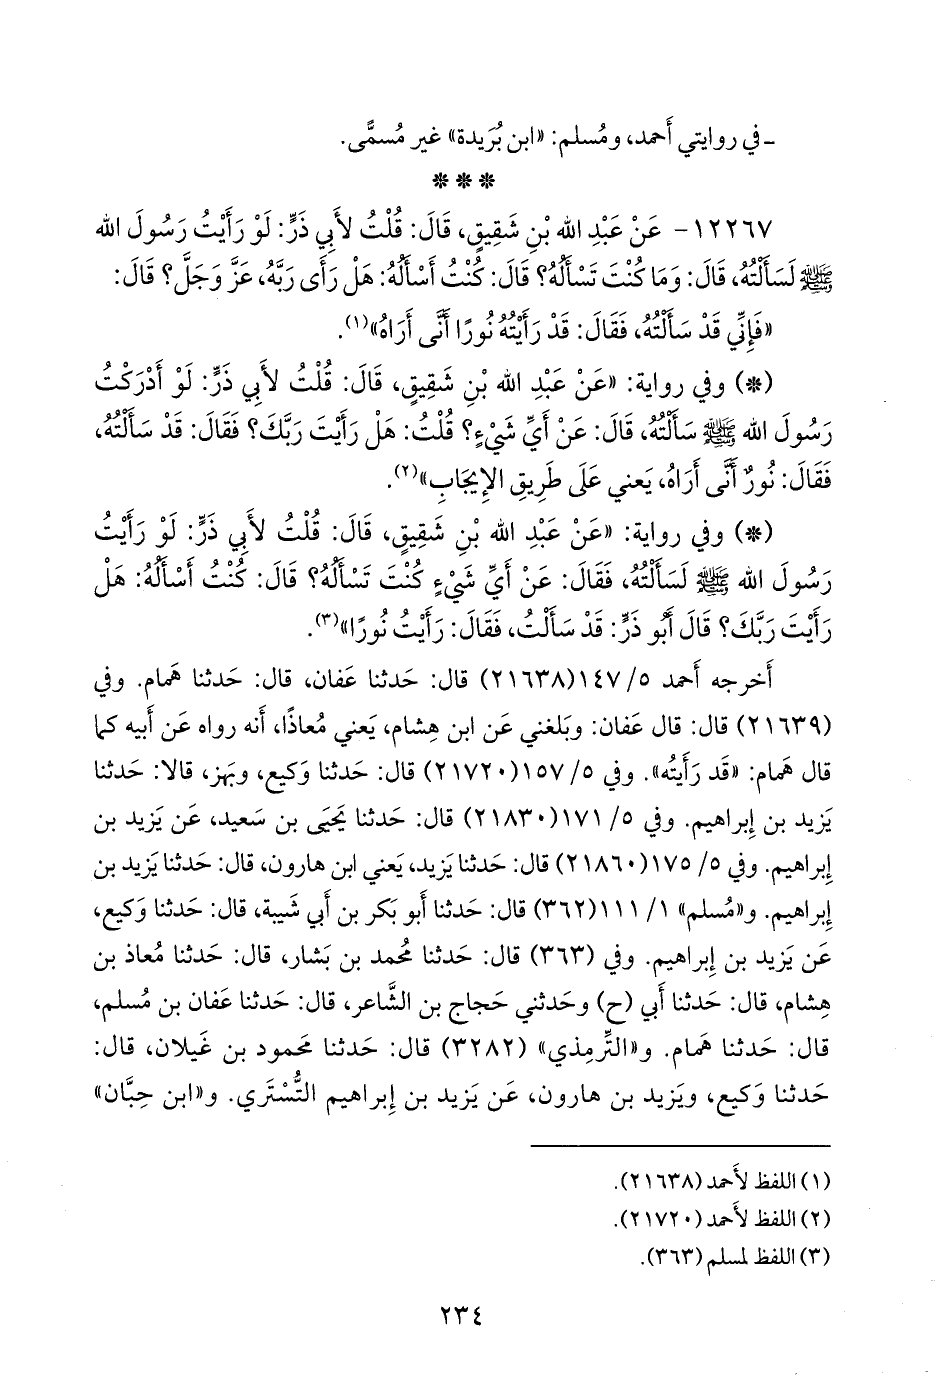 ـ في روايتي أَحمد، ومُسلم: «ابن بُرَيدة» غير مُسمًّى.
* * *
١٢٢٦٧- عَنْ عَبْدِ الله بْنِ شَقِيقٍ، قَالَ: قُلْتُ لأَبِي ذَرٍّ: لَوْ رَأَيْتُ رَسُولَ الله
ﷺ لَسَأَلْتُهُ، قَالَ: وَمَا كُنْتَ تَسْأَلُهُ؟ قَالَ: كُنْتُ أَسْأَلُهُ: هَلْ رَأَى رَبَّهُ، عَزَّ وَجَلَّ؟ قَالَ:
«فَإِنِّي قَدْ سَأَلْتُهُ، فَقَالَ: قَدْ رَأَيْتُهُ نُورًا أَنَّى أَرَاهُ»(١).
(*) وفي رواية: «عَنْ عَبْدِ الله بْنِ شَقِيقٍ، قَالَ: قُلْتُ لأَبِي ذَرٍّ: لَوْ أَدْرَكْتُ
رَسُولَ الله ﷺ سَأَلْتُهُ، قَالَ: عَنْ أَيِّ شَيْءٍ؟ قُلْتُ: هَلْ رَأَيْتَ رَبَّكَ؟ فَقَالَ: قَدْ سَأَلْتُهُ،
فَقَالَ: نُورٌ أَنَّى أَرَاهُ، يَعني عَلَى طَرِيقِ الإِيجَابِ»(٢).
(*) وفي رواية: «عَنْ عَبْدِ الله بْنِ شَقِيقٍ، قَالَ: قُلْتُ لأَبِي ذَرٍّ: لَوْ رَأَيْتُ
رَسُولَ الله ﷺ لَسَأَلْتُهُ، فَقَالَ: عَنْ أَيِّ شَيْءٍ كُنْتَ تَسْأَلُهُ؟ قَالَ: كُنْتُ أَسْأَلُهُ: هَلْ
رَأَيْتَ رَبَّكَ؟ قَالَ أَبُو ذَرٍّ: قَدْ سَأَلْتُ، فَقَالَ: رَأَيْتُ نُورًا»(٣).
أَخرجه أَحمد ٥/ ١٤٧(٢١٦٣٨) قال: حَدثنا عَفان، قال: حَدثنا هَمام. وفي
(٢١٦٣٩) قال: قال عَفان: وبَلغني عَن ابن هِشام، يَعني مُعاذًا، أَنه رواه عَن أَبيه كما
قال هَمام: «قَد رَأَيتُه». وفي ٥/ ١٥٧(٢١٧٢٠) قال: حَدثنا وَكيع، وبَهز، قالا: حَدثنا
يَزيد بن إِبراهيم. وفي ٥/ ١٧١(٢١٨٣٠) قال: حَدثنا يَحيَى بن سَعيد، عَن يَزيد بن
إِبراهيم. وفي ٥/ ١٧٥(٢١٨٦٠) قال: حَدثنا يَزيد، يَعني ابن هارون، قال: حَدثنا يَزيد بن
إِبراهيم. و«مُسلم» ١/ ١١١(٣٦٢) قال: حَدثنا أَبو بَكر بن أَبي شَيبة، قال: حَدثنا وَكيع،
عَن يَزيد بن إِبراهيم. وفي (٣٦٣) قال: حَدثنا مُحمد بن بَشار، قال: حَدثنا مُعاذ بن
هِشام، قال: حَدثنا أَبي (ح) وحَدثني حَجاج بن الشَّاعر، قال: حَدثنا عَفان بن مُسلم،
قال: حَدثنا هَمام. و«التِّرمِذي» (٣٢٨٢) قال: حَدثنا مَحمود بن غَيلان، قال:
حَدثنا وَكيع، ويَزيد بن هارون، عَن يَزيد بن إِبراهيم التُّسْتَري. و«ابن حِبَّان»
(١) اللفظ لأَحمد (٢١٦٣٨).
(٢) اللفظ لأَحمد (٢١٧٢٠).
(٣) اللفظ لمسلم (٣٦٣).
٢٣٤